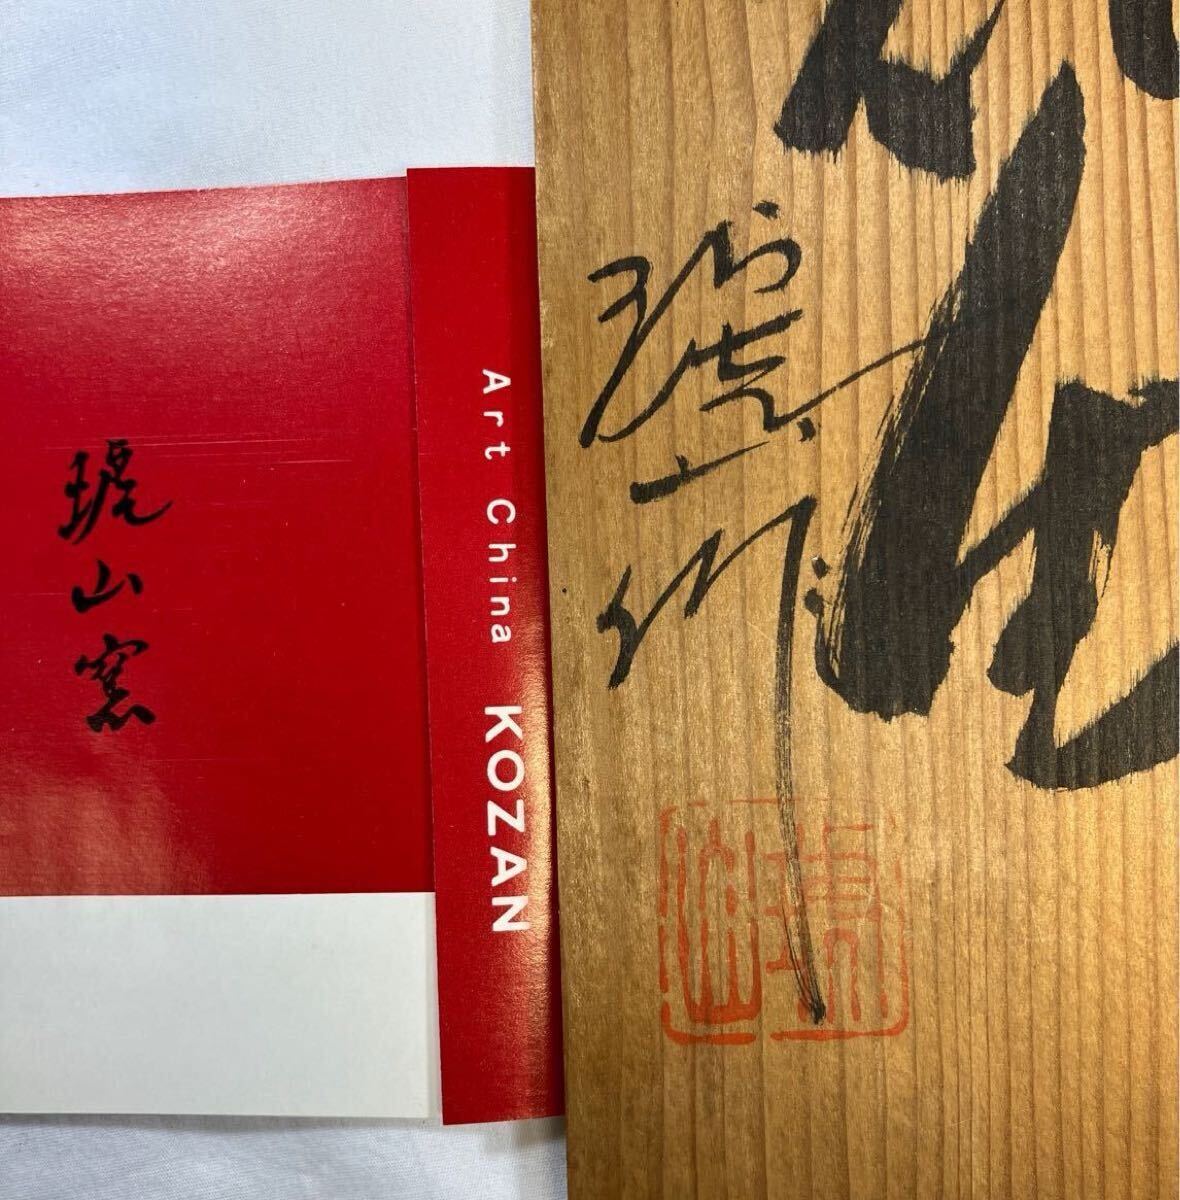 琥山窯
Art China KOZAN
琥山作
琥山